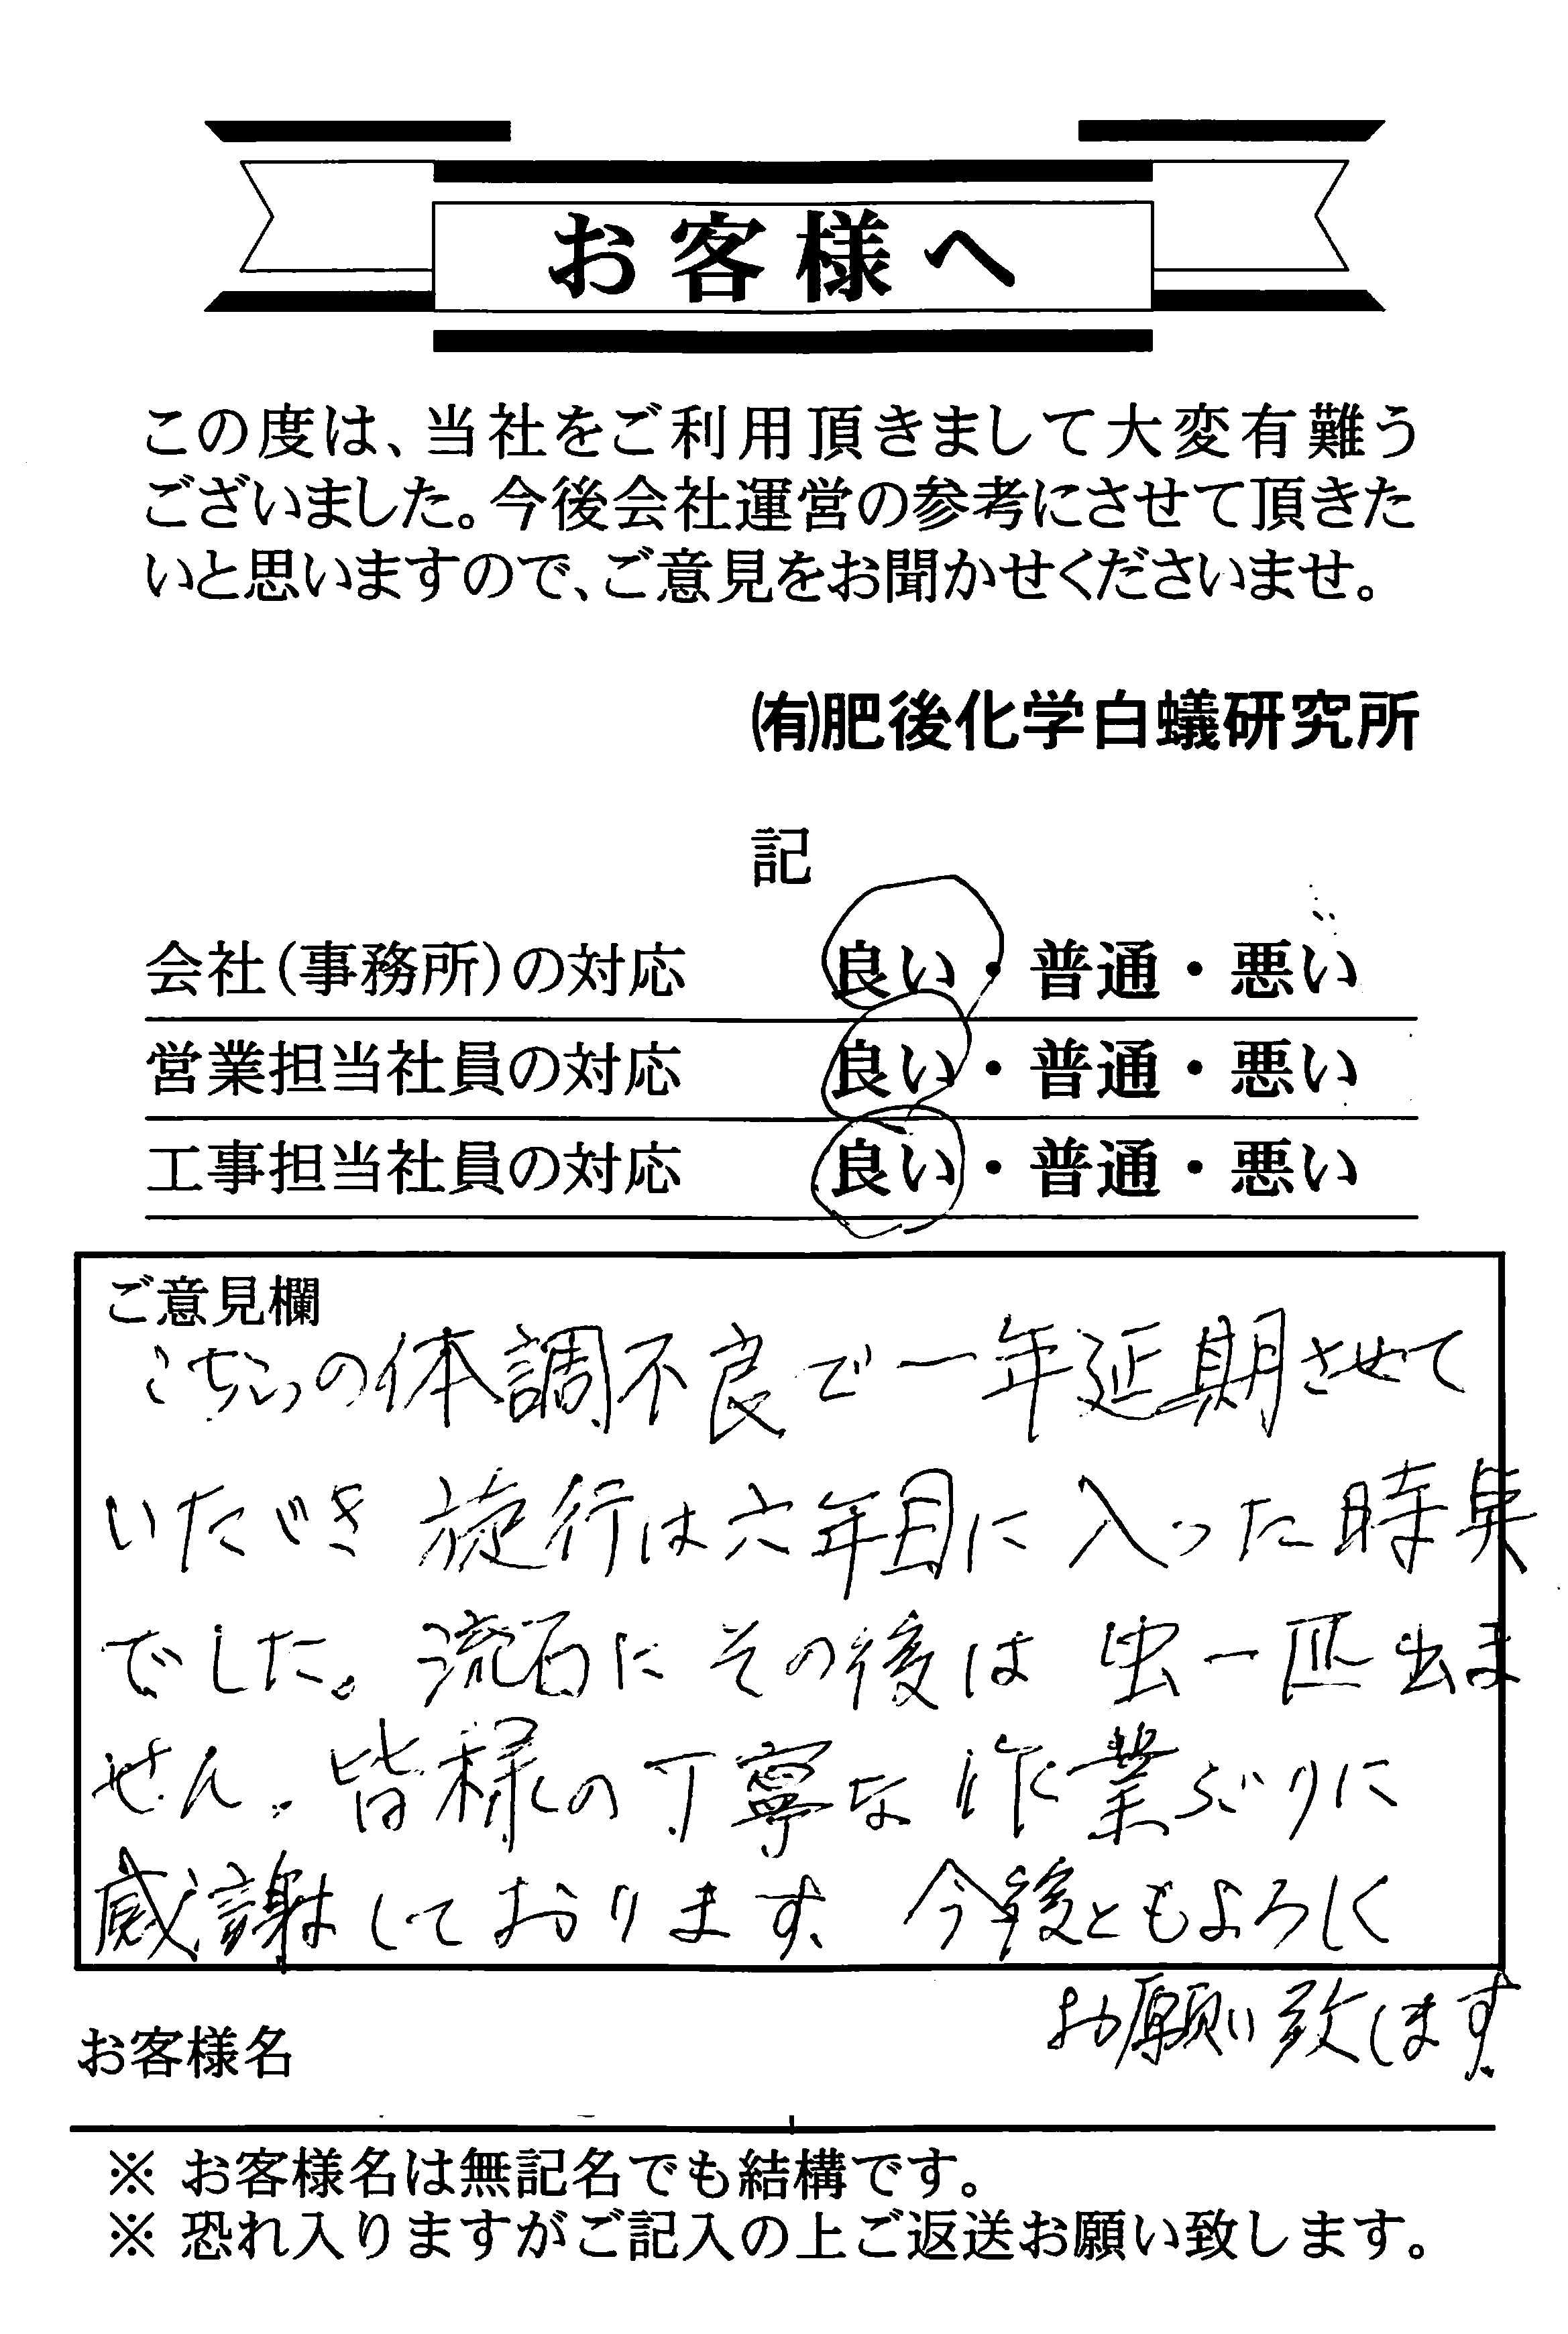 お客様へ
この度は、当社をご利用頂きまして大変有難う
ございました。今後会社運営の参考にさせて頂きた
いと思いますので、ご意見をお聞かせくださいませ。
㈲肥後化学白蟻研究所
記
会社(事務所)の対応 良い・普通・悪い
営業担当社員の対応 良い・普通・悪い
工事担当社員の対応 良い・普通・悪い
ご意見欄
こちらの体調不良で一年延期させて
いただき 施行は六年目に入った時点
でした。流石に その後は 虫一匹出ま
せん。皆様の丁寧な作業ぶりに
感謝しております。今後ともよろしく
お願い致します
お客様名
※ お客様名は無記名でも結構です。
※ 恐れ入りますがご記入の上ご返送お願い致します。